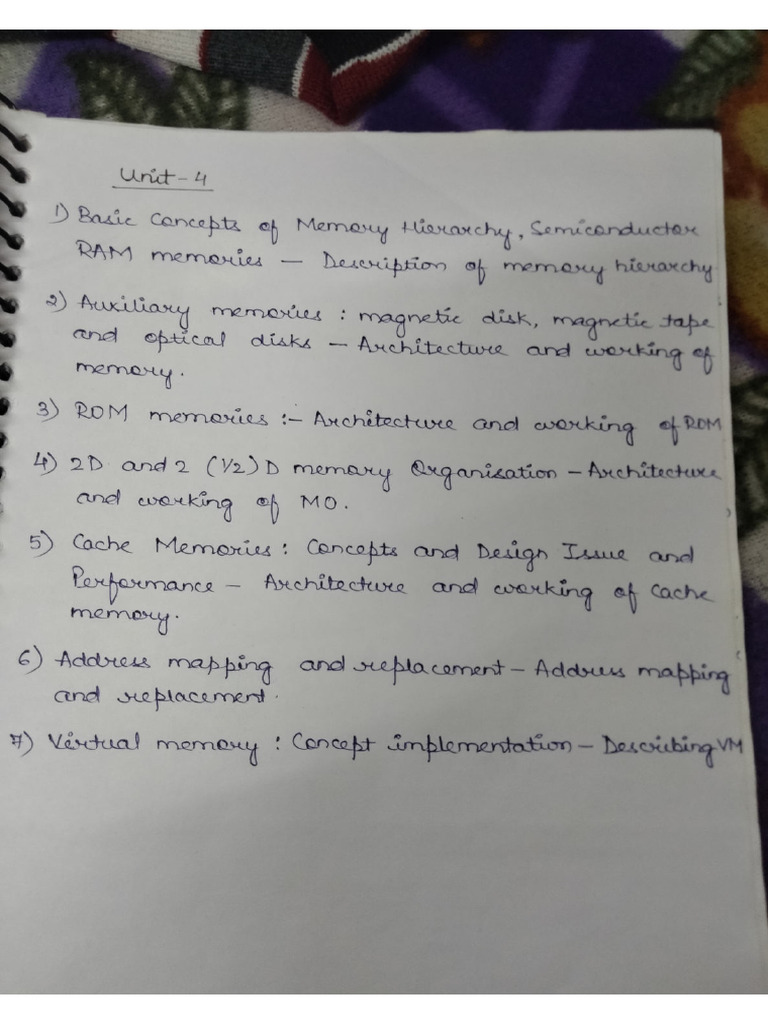 Unit-4
1) Basic Concepts of Memory Hierarchy, Semiconductor
RAM memories — Description of memory hierarchy
2) Auxiliary memories : magnetic disk, magnetic tape
and optical disks — Architecture and working of
memory.
3) ROM memories :- Architecture and working of ROM
4) 2D and 2 (1/2) D memory Organisation — Architecture
and working of MO.
5) Cache Memories : Concepts and Design Issue and
Performance — Architecture and working of Cache
memory.
6) Address mapping and replacement — Address mapping
and replacement.
7) Virtual memory : Concept implementation — Describing VM